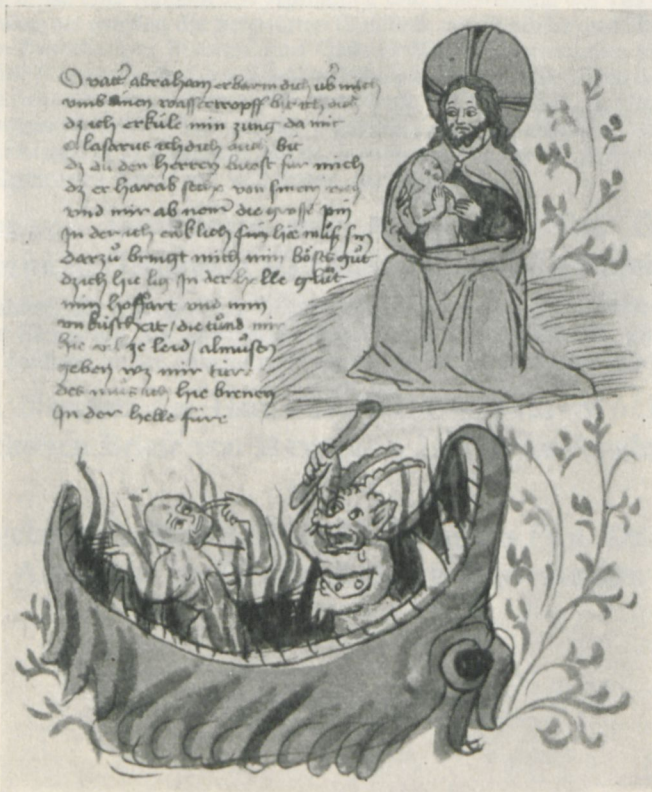 O vatter abraham erbarm dich vber mich
vmb ainen wassertropff bit ich dich
dz ich erküle min zung da mit
o lasarus ich dich ouch bit
dz du den herren bitest für mich
dz er harab von sinem
vnd mir ab nem die grosse pin
In der ich ewklich sin hie muß sin
darzů bringt mich min böses gůt
dz ich hie lig In der helle glůt
min hoffart vnd min
vnküschait / die tůnd mir
hie ze leid / almůsen
geben wz mir türe
des můs ich hie brenen
In der helle füre